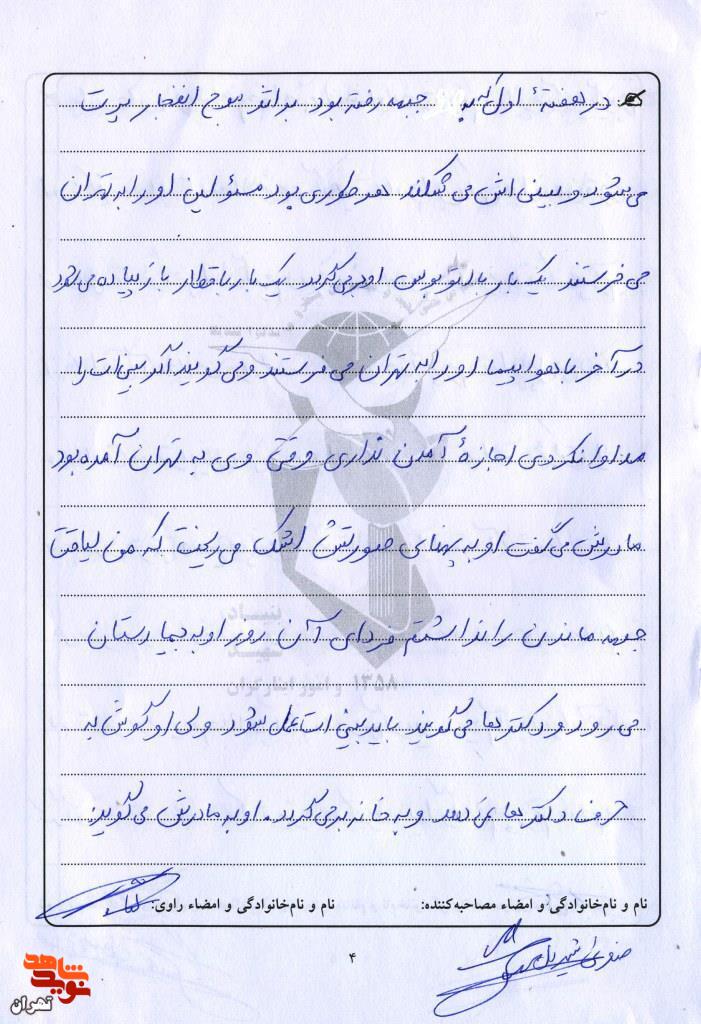 در هفتهٔ اول که به جبهه رفته بود بر اثر موج انفجار پرت
می شود و بینی اش می شکند هر طوری بود مسئولین او را به تهران
می فرستند یک بار با اتوبوس او برمی گردد یک بار با قطار باز پیاده می شود
در آخر با هواپیما او را به تهران می فرستند و می گویند اگر بینی ات را
مداوا نکردی اجازهٔ آمدن نداری وقتی وی به تهران آمده بود
مادرش می گفت او به پهنای صورتش اشک می ریخت که من لیاقت
جبهه ماندن را نداشتم فردای آن روز او به بیمارستان
می رود و دکترها می گویند باید بینی ات عمل شود ولی او گوش به
حرف دکترها نمی دهد و به خانه برمی گردد. او به مادرش می گوید:
نام و نام‌خانوادگی و امضاء مصاحبه‌کننده: نام و نام‌خانوادگی و امضاء راوی:
۴
بنیاد
شهید
و امور ایثارگران
۱۳۵۸
نوید شاهد
تهران